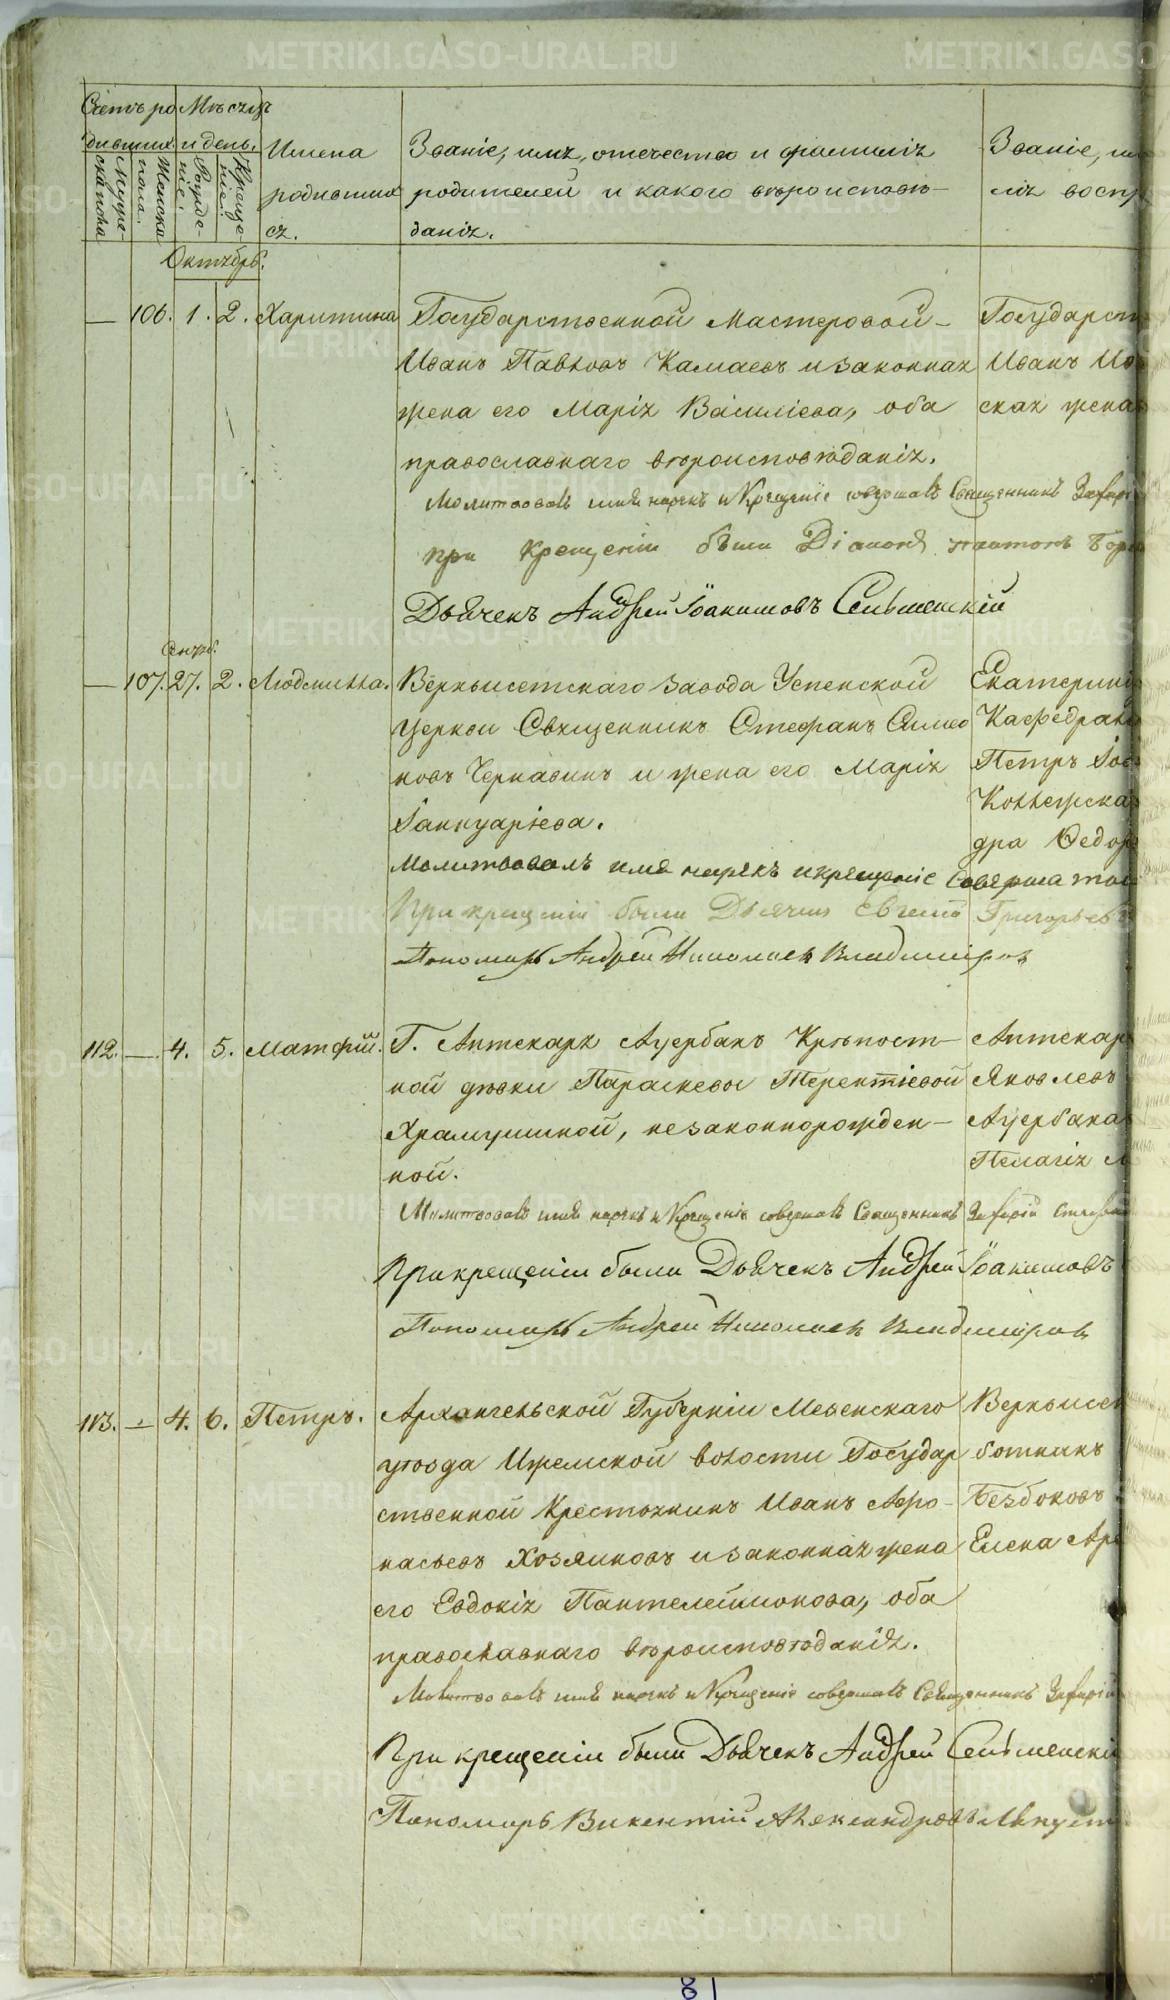 Счетъ ро Мѣсяцъ
дившихся и день. Имена Званіе, имя, отечество и фамилія Званіе,
Мужескa пола. Женска пола. Рожденіе. Крещеніе. родившихся. родителей и какого вѣроисповѣданія. лія воспр
Октябрь.
— 106. 1. 2. Харитина Государственной Мастеровой Государст
Иванъ Павловъ Камаевъ и законная Иванъ
жена его Марія Василіева, оба ская жена
православнаго вѣроисповѣданія.
Молитвовалъ имя нарекъ и Крещеніе совершалъ Священникъ
при Крещеніи были Діаконъ
Дьячекъ Андрей Іоакимовъ Сельменскій
Сентяб.
— 107. 27. 2. Людмилла. Верхъисетскаго завода Успенской Екатерин
Церкви Священникъ Стефанъ Симео Кафедраль
новъ Чернавинъ и жена его Марія Петръ
Іаннуаріева. Коллежска
дра Федор
Молитвовалъ имя нарекъ и крещеніе совершал
При крещеніи были Дьячекъ Евгеній Григорьев
Пономарь Андрей Николаевъ Владиміровъ
112. — 4. 5. Матфій. Г. Аптекаря Ауербахъ Крѣпост Аптекар
ной дѣвки Параскевы Терентіевой Яковлевъ
Храмушиной, незаконнорожден Ауербаха
ной. Пелагія
Молитвовалъ имя нарекъ и Крещеніе совершалъ Священникъ
При крещеніи были Дьячекъ Андрей Іоакимовъ
Пономарь Андрей Николаевъ Владиміровъ
113. — 4. 6. Петръ. Архангельской Губерніи Мезенскаго Верхъисет
уѣзда Ижемской волости Государ ботникъ
ственной Крестьянинъ Иванъ Афо Безбоковъ
насьевъ Хозяиновъ и законная жена Елена
его Евдокія Пантелеймонова, оба
православнаго вѣроисповѣданія.
Молитвовалъ имя нарекъ и Крещеніе совершалъ Священникъ
При крещеніи были Дьячекъ Андрей Сельменскій
Пономарь Викентій Александровъ
81
METRIKI.GASO-URAL.RU